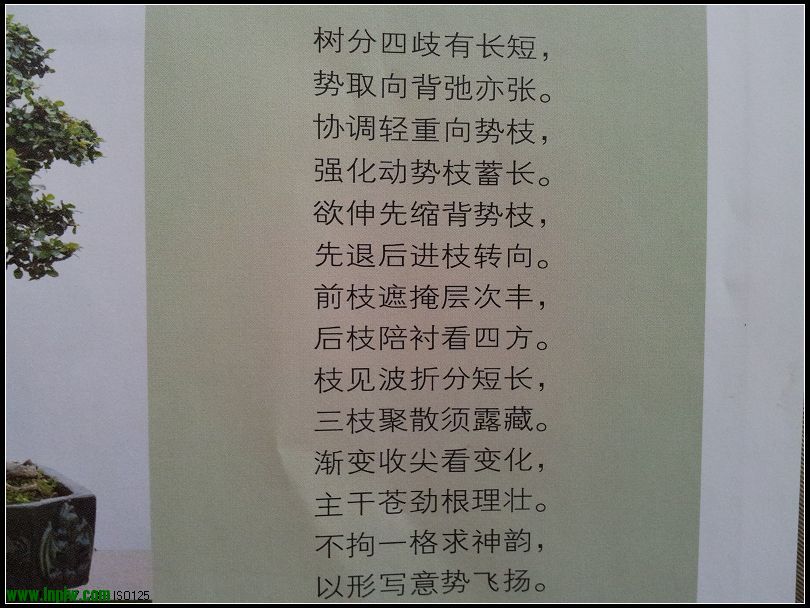 树分四歧有长短，
势取向背弛亦张。
协调轻重向势枝，
强化动势枝蓄长。
欲伸先缩背势枝，
先退后进枝转向。
前枝遮掩层次丰，
后枝陪衬看四方。
枝见波折分短长，
三枝聚散须露藏。
渐变收尖看变化，
主干苍劲根理壮。
不拘一格求神韵，
以形写意势飞扬。
ISO125